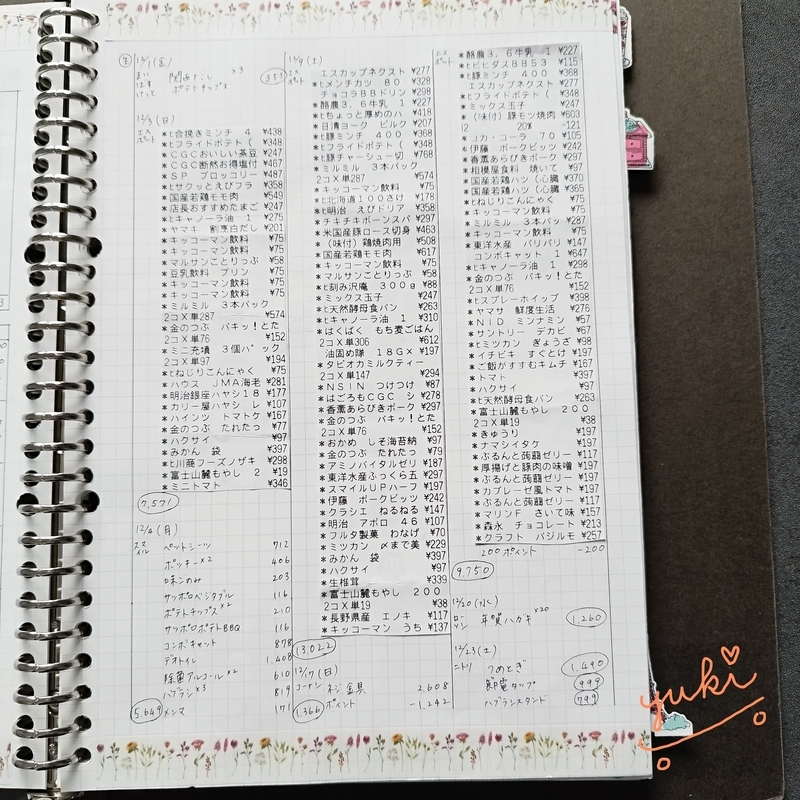 生 12/1(金)
関西だし ×3
ポテトチップス
353
12/3(日)
エスポット
*ﾋ合挽きミンチ 4 ¥438
*ﾋフライドポテト( ¥348
*CGCおいしい茶豆 ¥247
*CGC断然お得塩付 ¥467
*SP ブロッコリー ¥487
*ﾋサクッとえびフラ ¥358
*国産若鶏モモ肉 ¥549
*店長おすすめたまご ¥247
*ﾋキャノーラ油 1 ¥275
*ヤマキ 割烹白だし ¥201
*キッコーマン飲料 ¥75
*キッコーマン飲料 ¥75
*マルサンごとりっぷ ¥58
*豆乳飲料 プリン ¥75
*キッコーマン飲料 ¥75
*キッコーマン飲料 ¥75
*ミルミル 3本パック
2コX単287 ¥574
*金のつぶ パキッ!とた
2コX単76 ¥152
*ミニ充填 3個パック
2コX単97 ¥194
*ﾋねじりこんにゃく ¥75
*ハウス JMA海老 ¥281
*明治銀座ハヤシ18 ¥177
*カリー屋ハヤシ レ ¥107
*ハインツ トマトケ ¥167
*金のつぶ たれたっ ¥77
*ハクサイ ¥97
*みかん 袋 ¥397
*ﾋ川商フーズノザキ ¥298
*富士山麓もやし 2 ¥19
*ミニトマト ¥346
7,571
12/4(月)
スマイル
ペットシーツ 712
ポッキー×2 406
味のみ 203
サッポロベジタブル 116
ポテトチップス×2 210
サッポロポテトBBQ 116
コンボキャット 878
デオトイレ 1,408
除菌アルコール×2 610
ハブラシ×3 819
メンマ 171
5,649
12/9(土)
エスポット
エスカップネクスト ¥277
*ﾋメンチカツ 80 ¥328
チョコラBBドリン ¥298
*酪農3.6牛乳 1 ¥227
*ﾋちょっと厚めのハ ¥418
*日清ヨーク ピルク ¥207
*ﾋ豚ミンチ 400 ¥368
*ﾋフライドポテト( ¥348
*ﾋ豚チャーシュー切 ¥768
*ミルミル 3本パック
2コX単287 ¥574
*キッコーマン飲料 ¥75
*ﾋ北海道100さけ ¥178
*ﾋ明治 えびドリア ¥358
*チキチキボーンスパ ¥297
*米国産豚ロース切身 ¥463
*(味付)鶏焼肉用 ¥508
*国産若鶏モモ肉 ¥617
*キッコーマン飲料 ¥75
*マルサンごとりっぷ ¥58
*ﾋ刻み沢庵 300g ¥88
*ミックス玉子 ¥247
*ﾋ天然酵母食パン ¥263
*ﾋキャノーラ油 1 ¥310
*はくばく もち麦ごはん
2コX単306 ¥612
油固め隊 18GX ¥197
*タピオカミルクティー
2コX単147 ¥294
*NSIN つけつけ ¥87
*はごろもCGC シ ¥278
*香薫あらびきポーク ¥297
*金のつぶ パキッ!とた
2コX単76 ¥152
*おかめ しそ海苔納 ¥97
*金のつぶ たれたっ ¥79
*アミノバイタルゼリ ¥187
*東洋水産ふっくら五 ¥297
*スマイルUPハーフ ¥197
*伊藤 ポークビッツ ¥242
*クラシエ ねるねる ¥147
*明治 アポロ 46 ¥107
*フルタ製菓 わなげ ¥70
*ミツカン 〆まで美 ¥229
*みかん 袋 ¥397
*ハクサイ ¥97
*生椎茸 ¥339
*富士山麓もやし 200
2コX単19 ¥38
*長野県産 エノキ ¥117
*キッコーマン うち ¥137
13,022
12/17(日)
コーナン
ネジ金具 2,608
ポイント -1,242
1,366
エスポット
*酪農3.6牛乳 1 ¥227
*ﾋビヒダスBB53 ¥115
*ﾋ豚ミンチ 400 ¥368
エスカップネクスト ¥277
*ﾋフライドポテト( ¥348
*ミックス玉子 ¥247
*(味付)豚モツ焼肉 ¥603
20% -121
*コカ・コーラ 70 ¥105
*伊藤 ポークビッツ ¥242
*香薫あらびきポーク ¥297
*相模屋食料 焼いて ¥97
*国産若鶏ハツ(心臓 ¥370
*国産若鶏ハツ(心臓 ¥365
*ﾋねじりこんにゃく ¥75
*キッコーマン飲料 ¥75
*ミルミル 3本パッ ¥287
*キッコーマン飲料 ¥75
*東洋水産 バリバリ ¥147
コンボキャット 1 ¥647
*ﾋキャノーラ油 1 ¥298
*金のつぶ パキッ!とた
2コX単76 ¥152
*ﾋスプレーホイップ ¥398
*ヤマサ 鮮度生活 ¥276
*NID ミンナミン ¥57
*サントリー デカビ ¥67
*ﾋミツカン ぎょうざ ¥98
*イチビキ すぐとけ ¥197
*ご飯がすすむキムチ ¥167
*トマト ¥397
*ハクサイ ¥97
*ﾋ天然酵母食パン ¥263
*富士山麓もやし 200
2コX単19 ¥38
*きゅうり ¥197
*ナマシイタケ ¥197
*ぷるんと蒟蒻ゼリー ¥117
*厚揚げと豚肉の味噌 ¥197
*ぷるんと蒟蒻ゼリー ¥117
*カプレーゼ風トマト ¥197
*ぷるんと蒟蒻ゼリー ¥117
*マリンF さいて味 ¥157
*森永 チョコレート ¥213
*クラフト バジルモ ¥257
200ポイント -200
9,750
12/20(水)
ローソン
年賀ハガキ×20
1,260
12/23(土)
ニトリ
つめとぎ 1,490
節電タップ 999
ハブラシスタンド 799
yuki